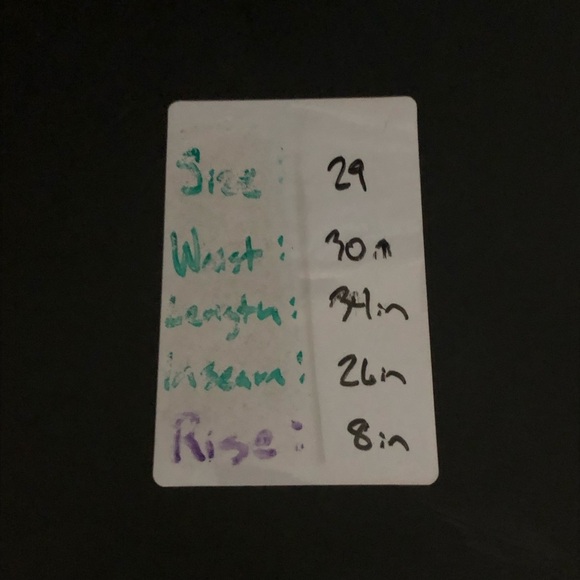 Size: 29
Waist: 30in
Length: 34in
Inseam: 26in
Rise: 8in